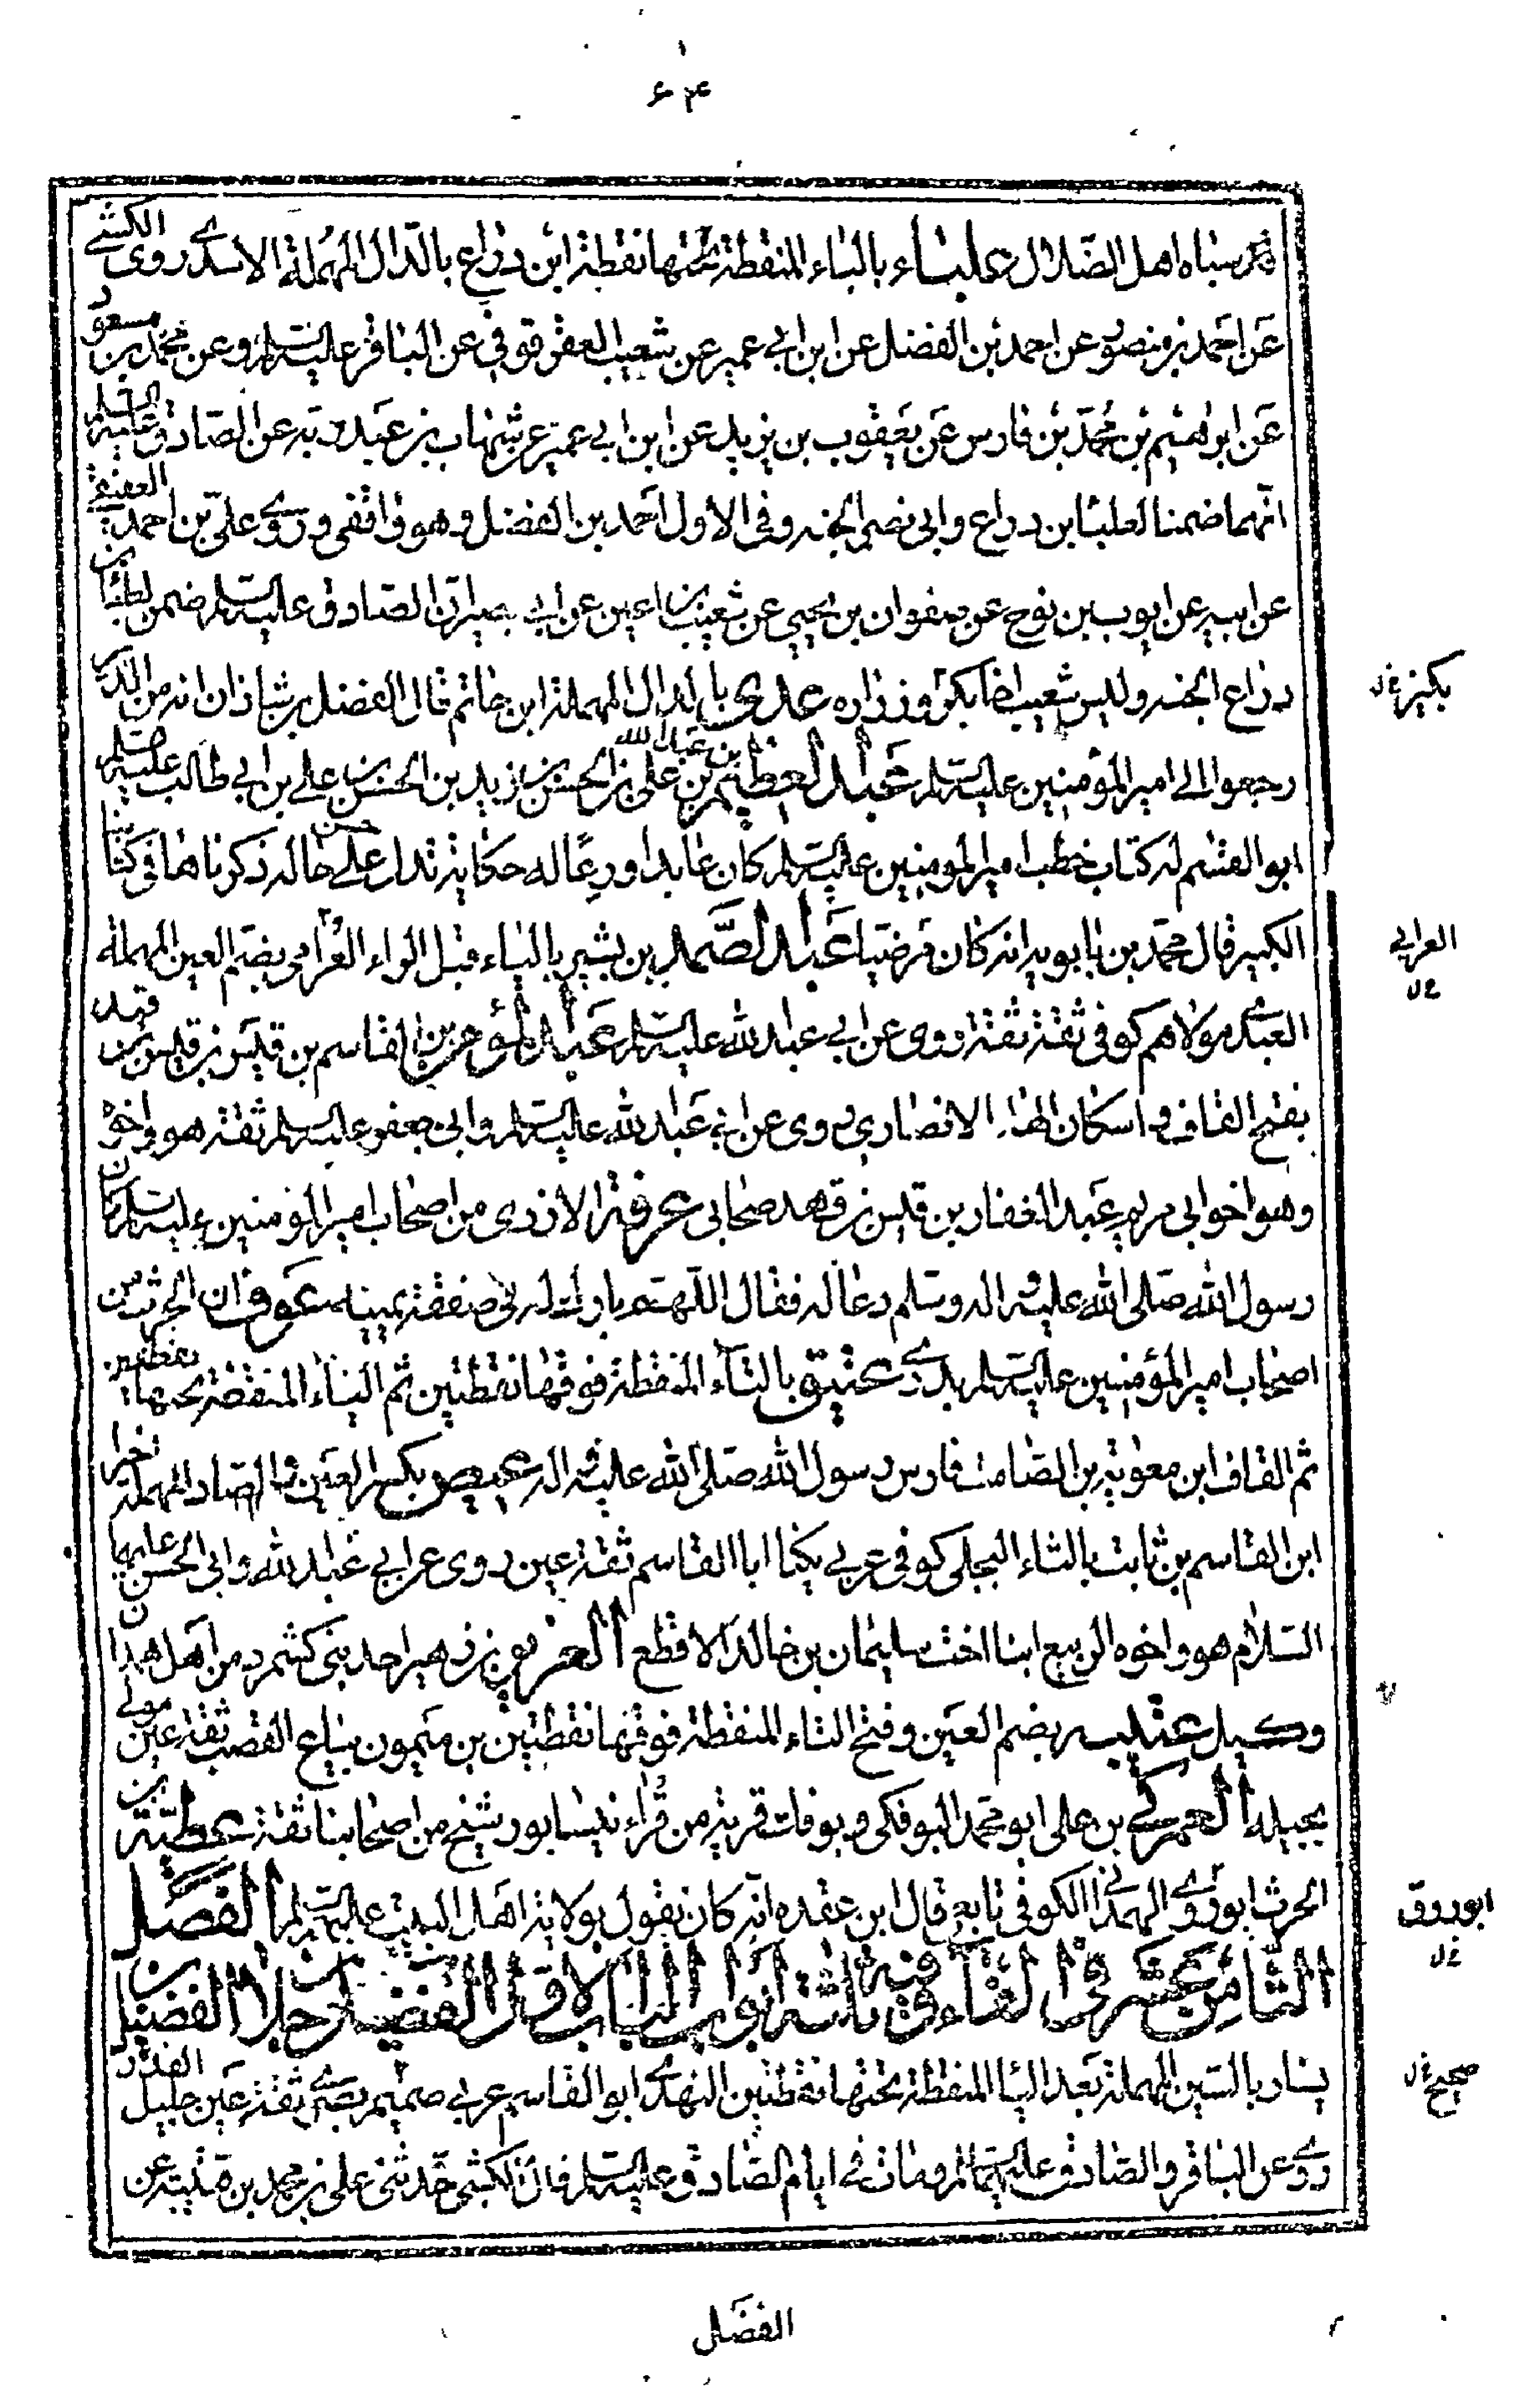 ۶۴
سباه اهل الضلال علباء بالباء المنقطة تحتها نقطة ابن دراع بالدال المهملة الاسدى روى الكشى
عن احمد بن منصور عن احمد بن الفضل عن ابن ابي عمير عن شعيب العقرقوفي عن الباقر عليه السلم وعن محمد بن مسعود
عن ابرهيم بن محمد بن فارس عن يعقوب بن يزيد عن ابن ابي عمير عن شهاب بن عبد ربه عن الصادق عليه السلم
انهما ضمنا لعلبا بن دراع وابي بصير الجنه وفى الاول احمد بن الفضل وهو واقفى وروى على بن احمد العقيقى
عن ابيه عن ايوب بن نوح عن صفوان بن يحيى عن شعيب بن اعين عن ابي بصير ان الصادق عليه السلم ضمن لعلبا بن
دراع الجنه وليس شعيب اخا بكر وزراره عدى بالدال المهملة ابن حاتم قال الفضل بن شاذان انه من الذين
رجعوا الى امير المؤمنين عليه السلم عبد العظيم بن عبد الله بن على بن الحسن بن زيد بن الحسن بن على بن ابي طالب عليه السلم
ابو القسم له كتاب خطب امير المومنين عليه السلم كان عابدا ورعا له حكاية تدل على حسن حاله ذكرناها فى كتابنا
الكبير قال محمد بن بابويه انه كان مرضيا عبد الصمد بن بشير بالياء قبل الراء العرامى بضم العين المهملة
العبدى مولاهم كوفى ثقة ثقة روى عن ابي عبد الله عليه السلم عبد المؤمن بن القاسم بن قيس بن قيس بن قهد
بفتح القاف واسكان الهاء الانصارى روى عن ابي عبد الله عليه السلم وابى جعفر عليه السلم ثقة هو واخوه
وهو اخو ابي مريم عبد الغفار بن قيس بن قهد صحابى عرفة الازدى من اصحاب امير المؤمنين عليه السلم كان
رسول الله صلى الله عليه واله وسلم دعا له فقال اللهم بارك له فى صفقة يمينه عوف بن الحرث من
اصحاب امير المؤمنين عليه السلم بدرى عتيق بالتاء المنقطة فوقها نقطتين ثم الياء المنقطة تحتها نقطتين
ثم القاف ابن معوية بن الصامت فارس رسول الله صلى الله عليه واله عيص بكسر العين والصاد المهملة اخيرا
ابن القاسم بن ثابت بالثاء البجلى كوفى عربي يكنا ابا القاسم ثقة عين روى عن ابي عبد الله وابى الحسن عليهما
السلام هو واخوه الربيع ابنا اخت سليمان بن خالد الاقطع العزيز بن زهير احد بنى كشمرد من اهل همدان
وكيل عتيبه بضم العين وفتح التاء المنقطة فوقها نقطتين بن ميمون بياع القصب ثقة عين مولى
بجيله العمركى بن على ابو محمد البوفكى وبوفك قرية من قراء نيسابور شيخ من اصحابنا ثقة عطية بن
الحرث ابو روق الهمدانى الكوفى تابعى قال ابن عقده انه كان يقول بولاية اهل البيت عليهم السلم الفصل
الثامن عشر فى الفاء وفيه ثلثة ابواب الباب الاول الفضيل رجلان الفضيل بن
يسار بالسين المهملة بعد اليا المنقطة تحتها نقطتين النهدى ابو القاسم عربي صميم بصرى ثقة عين جليل القدر
روى عن الباقر والصادق عليهما السلم ومات فى ايام الصادق عليه السلم قال الكشى حدثنى على بن محمد بن قتيبة عن
بكير خ ل
العرابى
خ ل
ابو روق
خ ل
صحيح خ ل
الفضل